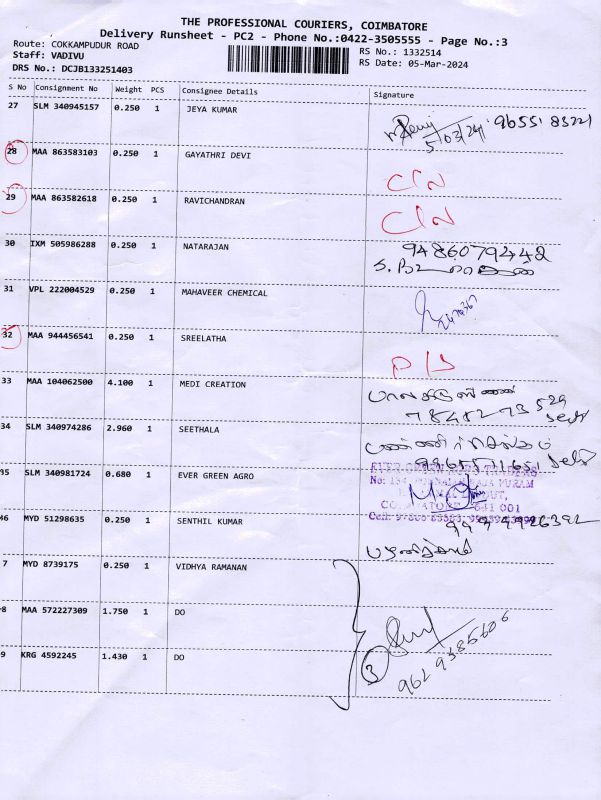 THE PROFESSIONAL COURIERS, COIMBATORE
Delivery Runsheet - PC2 - Phone No.:0422-3505555 - Page No.:3
Route: COKKAMPUDUR ROAD
Staff: VADIVU
DRS No.: DCJB133251403
RS No.: 1332514
RS Date: 05-Mar-2024
S No Consignment No Weight PCS Consignee Details Signature
27 SLM 340945157 0.250 1 JEYA KUMAR
5/03/24
28 MAA 863583103 0.250 1 GAYATHRI DEVI
C/N
29 MAA 863582618 0.250 1 RAVICHANDRAN
C/N
30 IXM 505986288 0.250 1 NATARAJAN
9486079442
31 VPL 222004529 0.250 1 MAHAVEER CHEMICAL
32 MAA 944456541 0.250 1 SREELATHA
33 MAA 104062500 4.100 1 MEDI CREATION
34 SLM 340974286 2.960 1 SEETHALA
35 SLM 340981724 0.680 1 EVER GREEN AGRO
641 001
46 MYD 51298635 0.250 1 SENTHIL KUMAR
7 MYD 8739175 0.250 1 VIDHYA RAMANAN
8 MAA 572227309 1.750 1 DO
9 KRG 4592245 1.430 1 DO
3